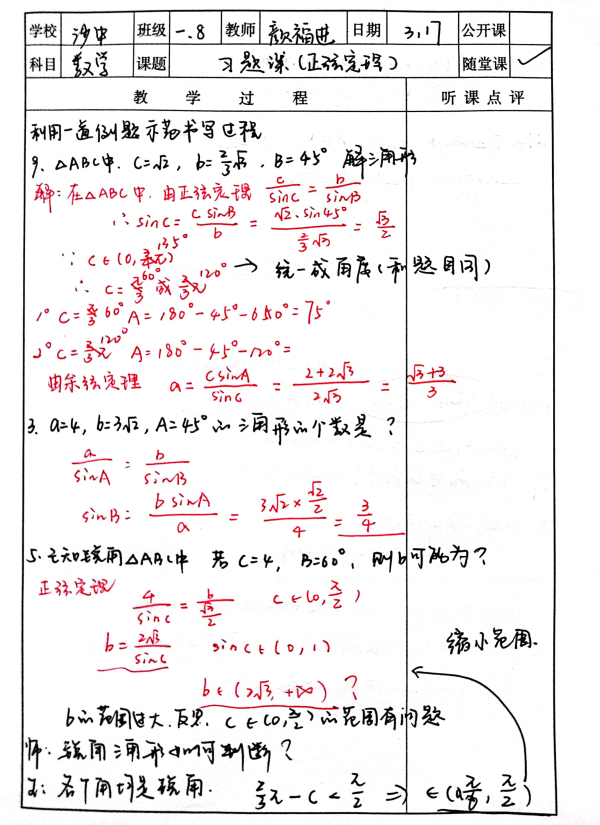 学校 沙中 班级 一.8 教师 颜福进 日期 3.17 公开课
科目 数学 课题 习题课(正弦定理) 随堂课 ✓
教 学 过 程 听课点评
利用一道例题示范书写过程
9. △ABC中. C=√2, b=2/3√3, B=45° 解三角形
解: 在△ABC中, 由正弦定理 c/sinC = b/sinB
∴ sinC = c sinB/b = √2·sin45°/(2/3√3) = √3/2
∵ C∈(0, 135°)
∴ C = 60° 或 120° → 统一成角度(和题目同)
1° C = 60° A = 180°-45°-60° = 75°
2° C = 120° A = 180°-45°-120° =
由余弦定理 a = c sinA/sinC = (2+2√3)/(2√3) = (√3+3)/3
3. a=4, b=3√2, A=45° 的三角形的个数是?
a/sinA = b/sinB
sinB = b sinA/a = (3√2×√2/2)/4 = 3/4
5. 已知锐角△ABC中 若 C=4, B=60°, 则b可能为?
正弦定理
4/sinC = b/(√3/2) C∈(0, π/2)
b = 2√3/sinC sinC∈(0, 1)
缩小范围.
b∈(2√3, +∞) ?
b的范围过大. 反思. C∈(0, π/2) 的范围有问题
师: 锐角三角形如何判断?
生: 各个角均是锐角. 2/3π - C < π/2 ⇒ ∈(π/6, π/2)